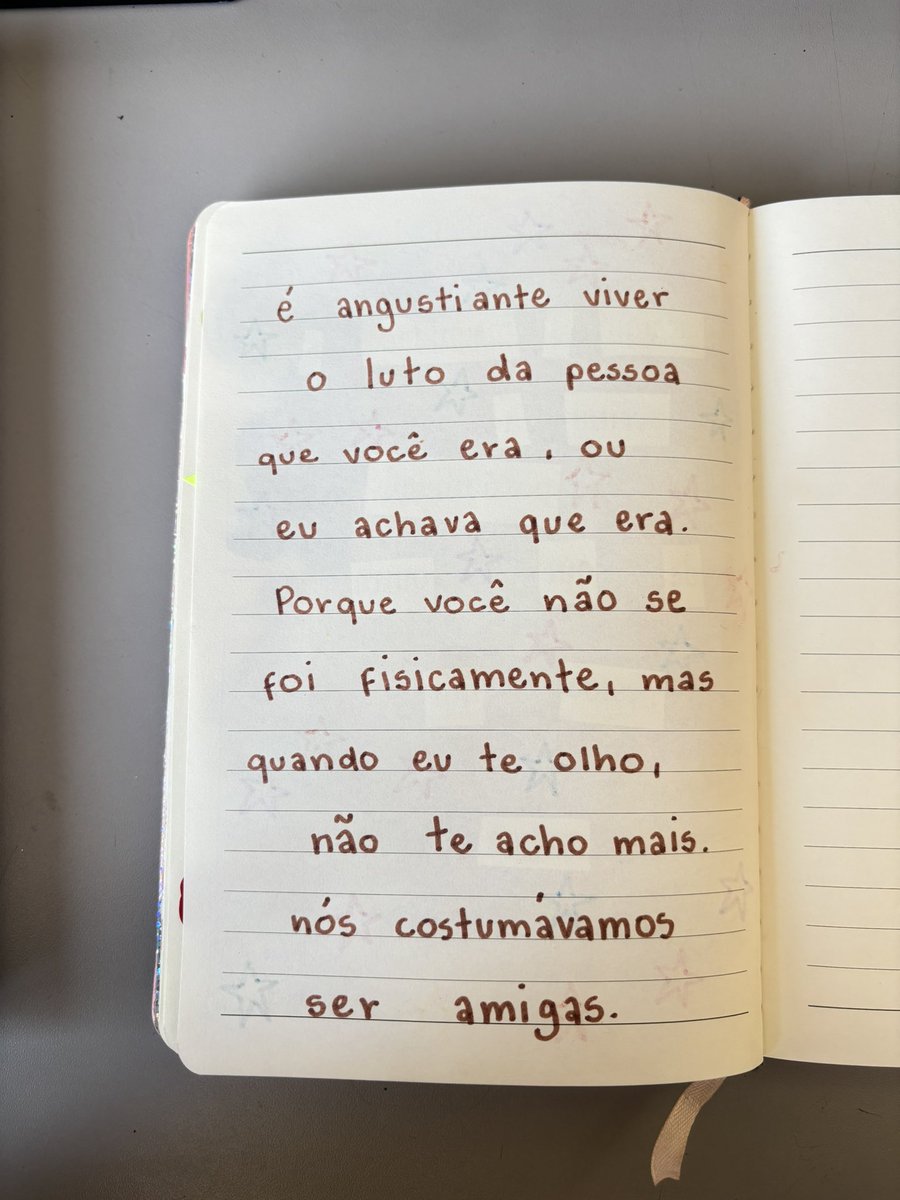 é angustiante viver
o luto da pessoa
que você era, ou
eu achava que era.
Porque você não se
foi fisicamente, mas
quando eu te olho,
não te acho mais.
nós costumávamos
ser amigas.